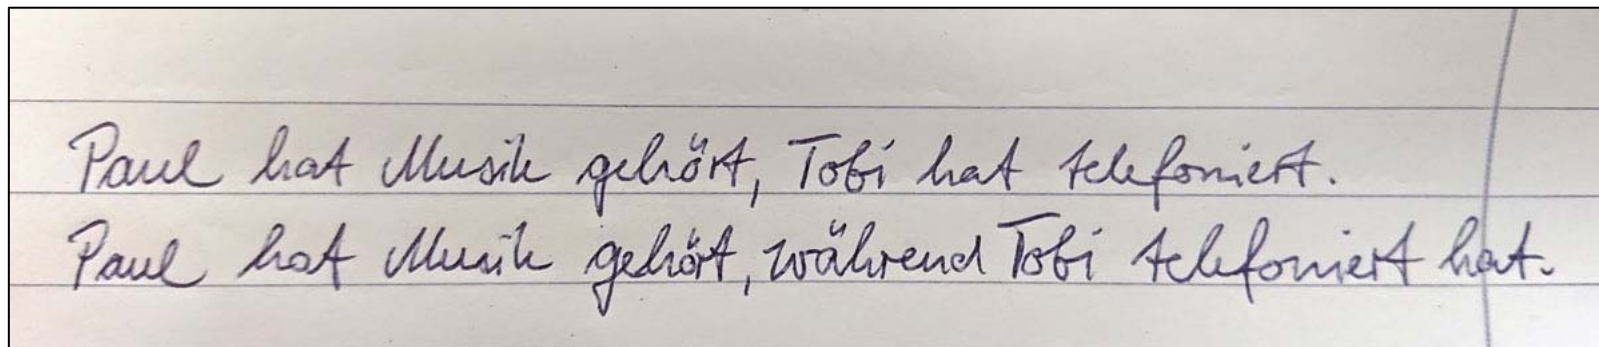 Paul hat Musik gehört, Tobi hat telefoniert.
Paul hat Musik gehört, während Tobi telefoniert hat.